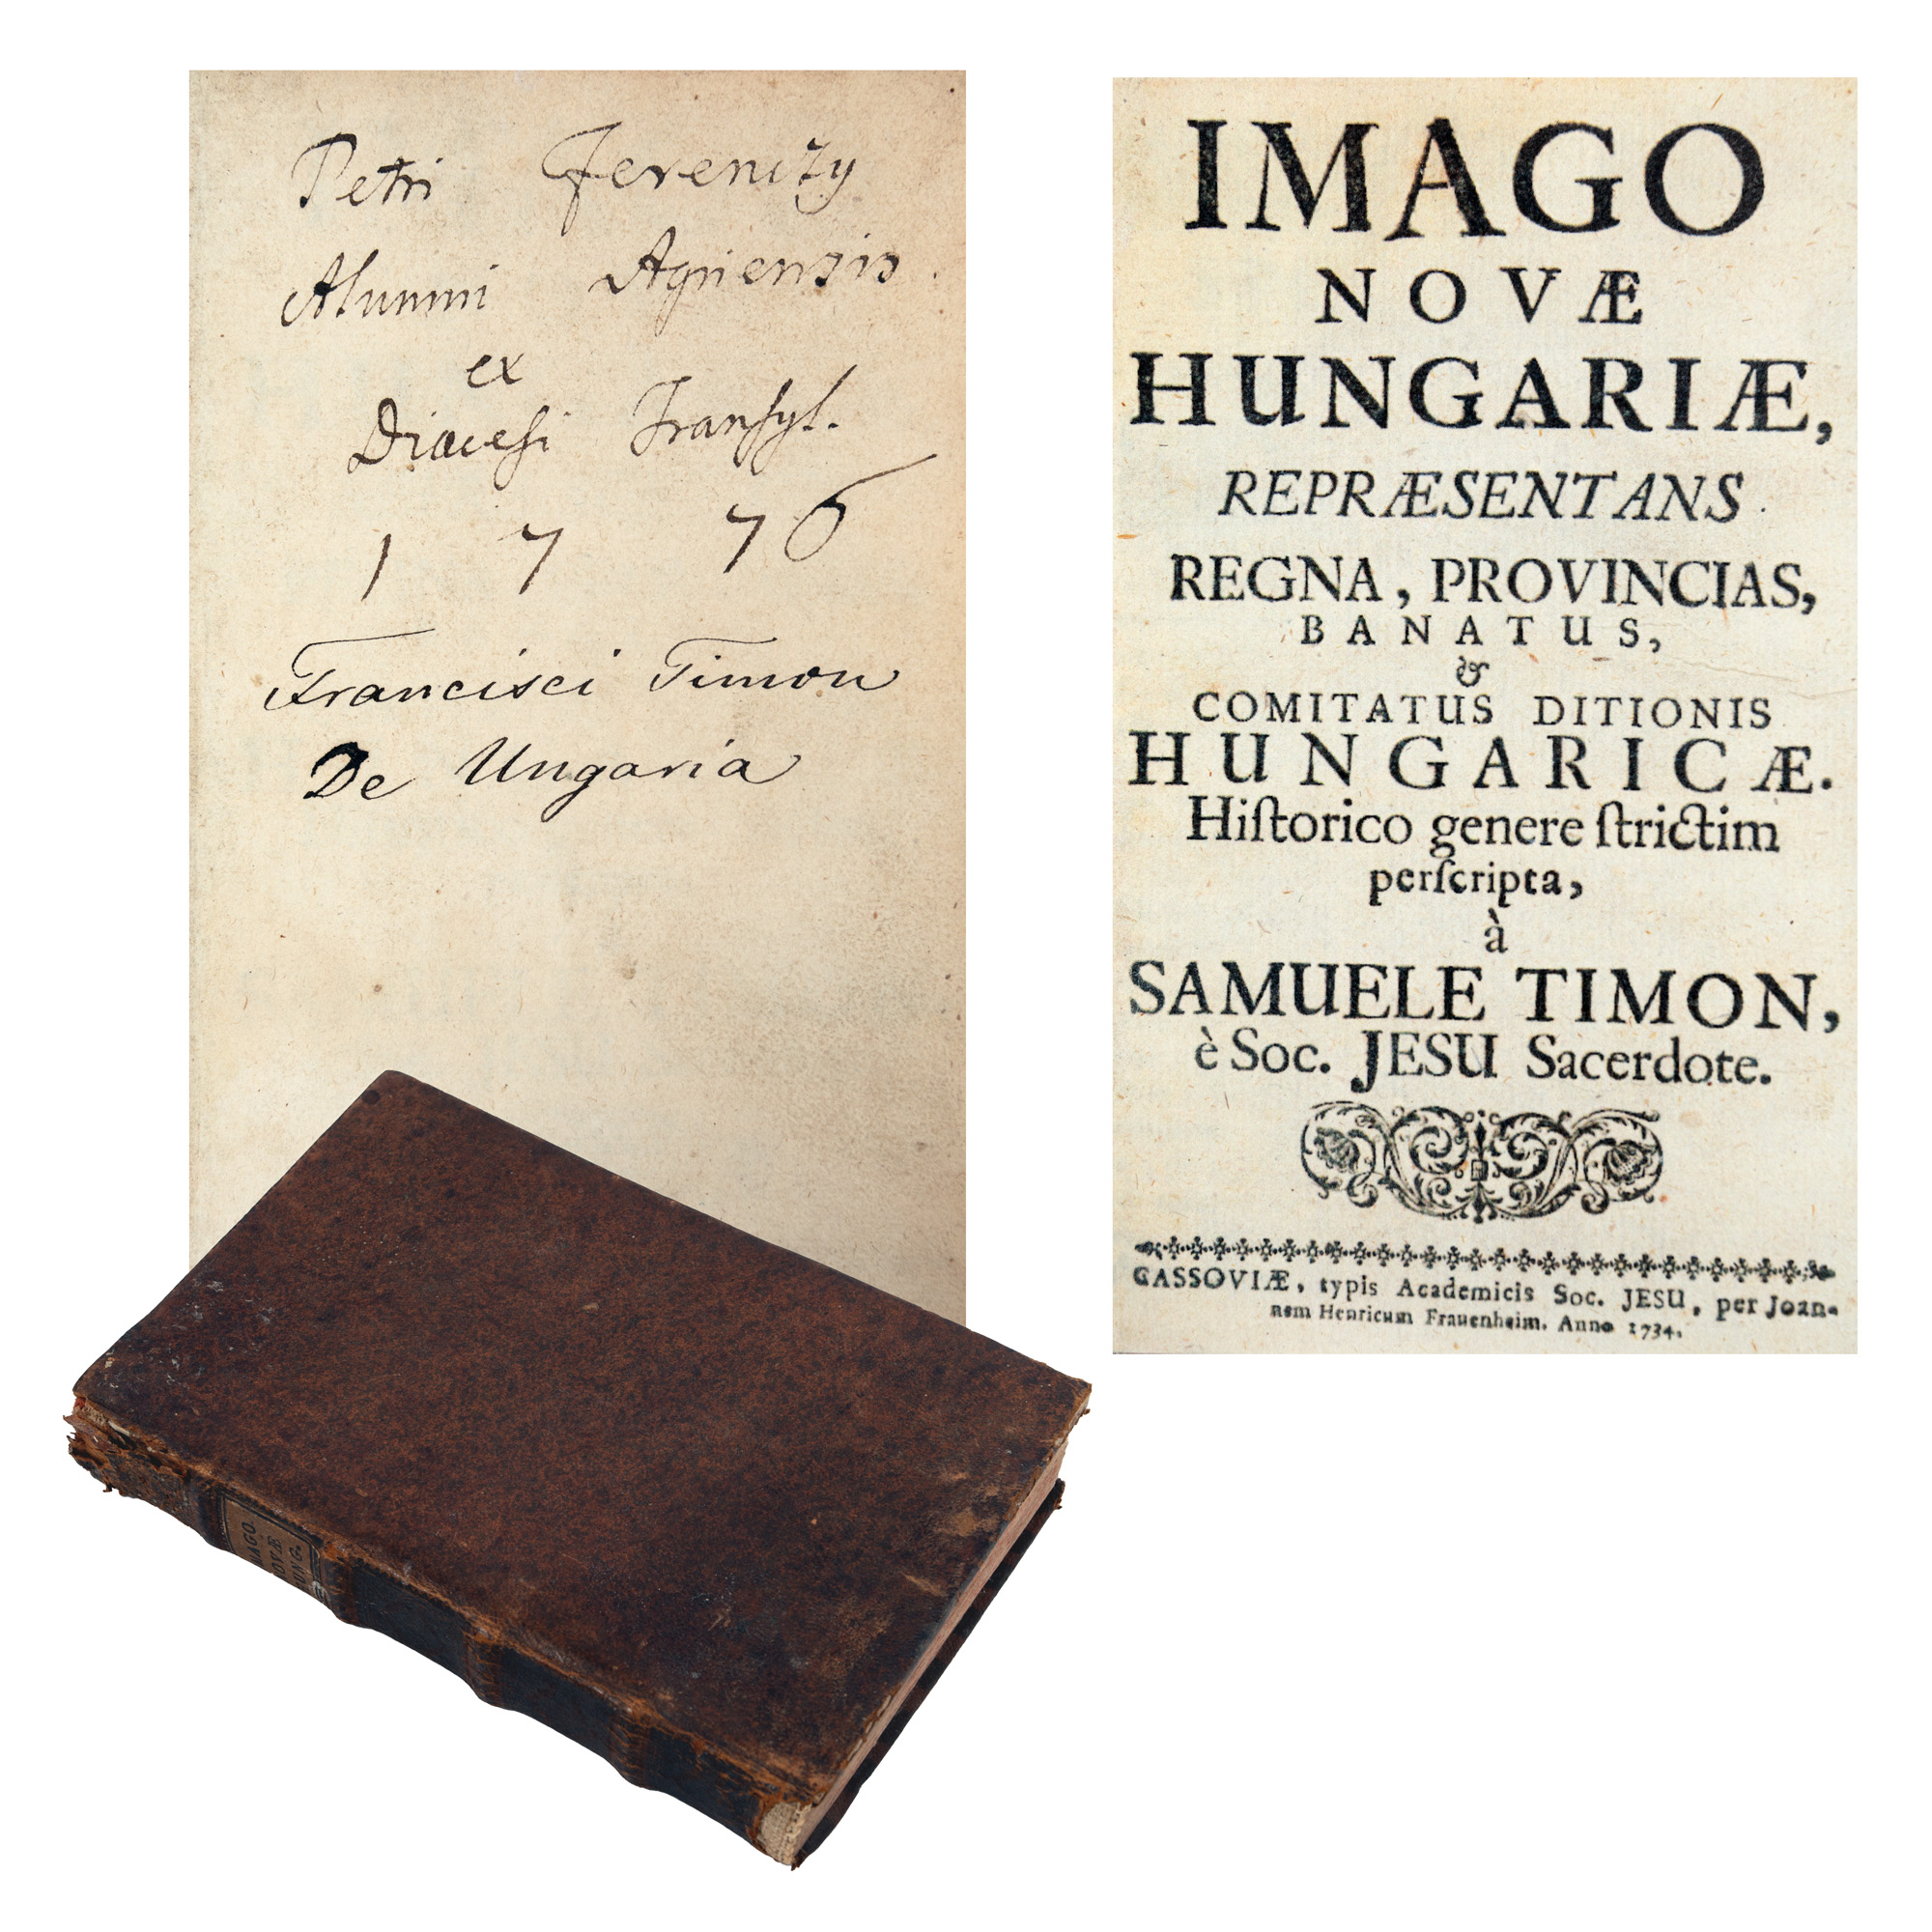 Petri Ferenczy
Alumni Agriensis.
ex
Diœcesi Transyl.
1 7 7 6
Francisci Timon
De Ungaria
IMAGO
NOVÆ
HUNGARIÆ,
REPRÆSENTANS
REGNA, PROVINCIAS,
BANATUS,
&
COMITATUS DITIONIS
HUNGARICÆ.
Hiſtorico genere ſtrictim
perſcripta,
à
SAMUELE TIMON,
è Soc. JESU Sacerdote.
CASSOVIÆ, typis Academicis Soc. JESU, per Joan-
nem Henricum Frauenheim. Anno 1734.
IMAGO
NOVÆ
HUNG.